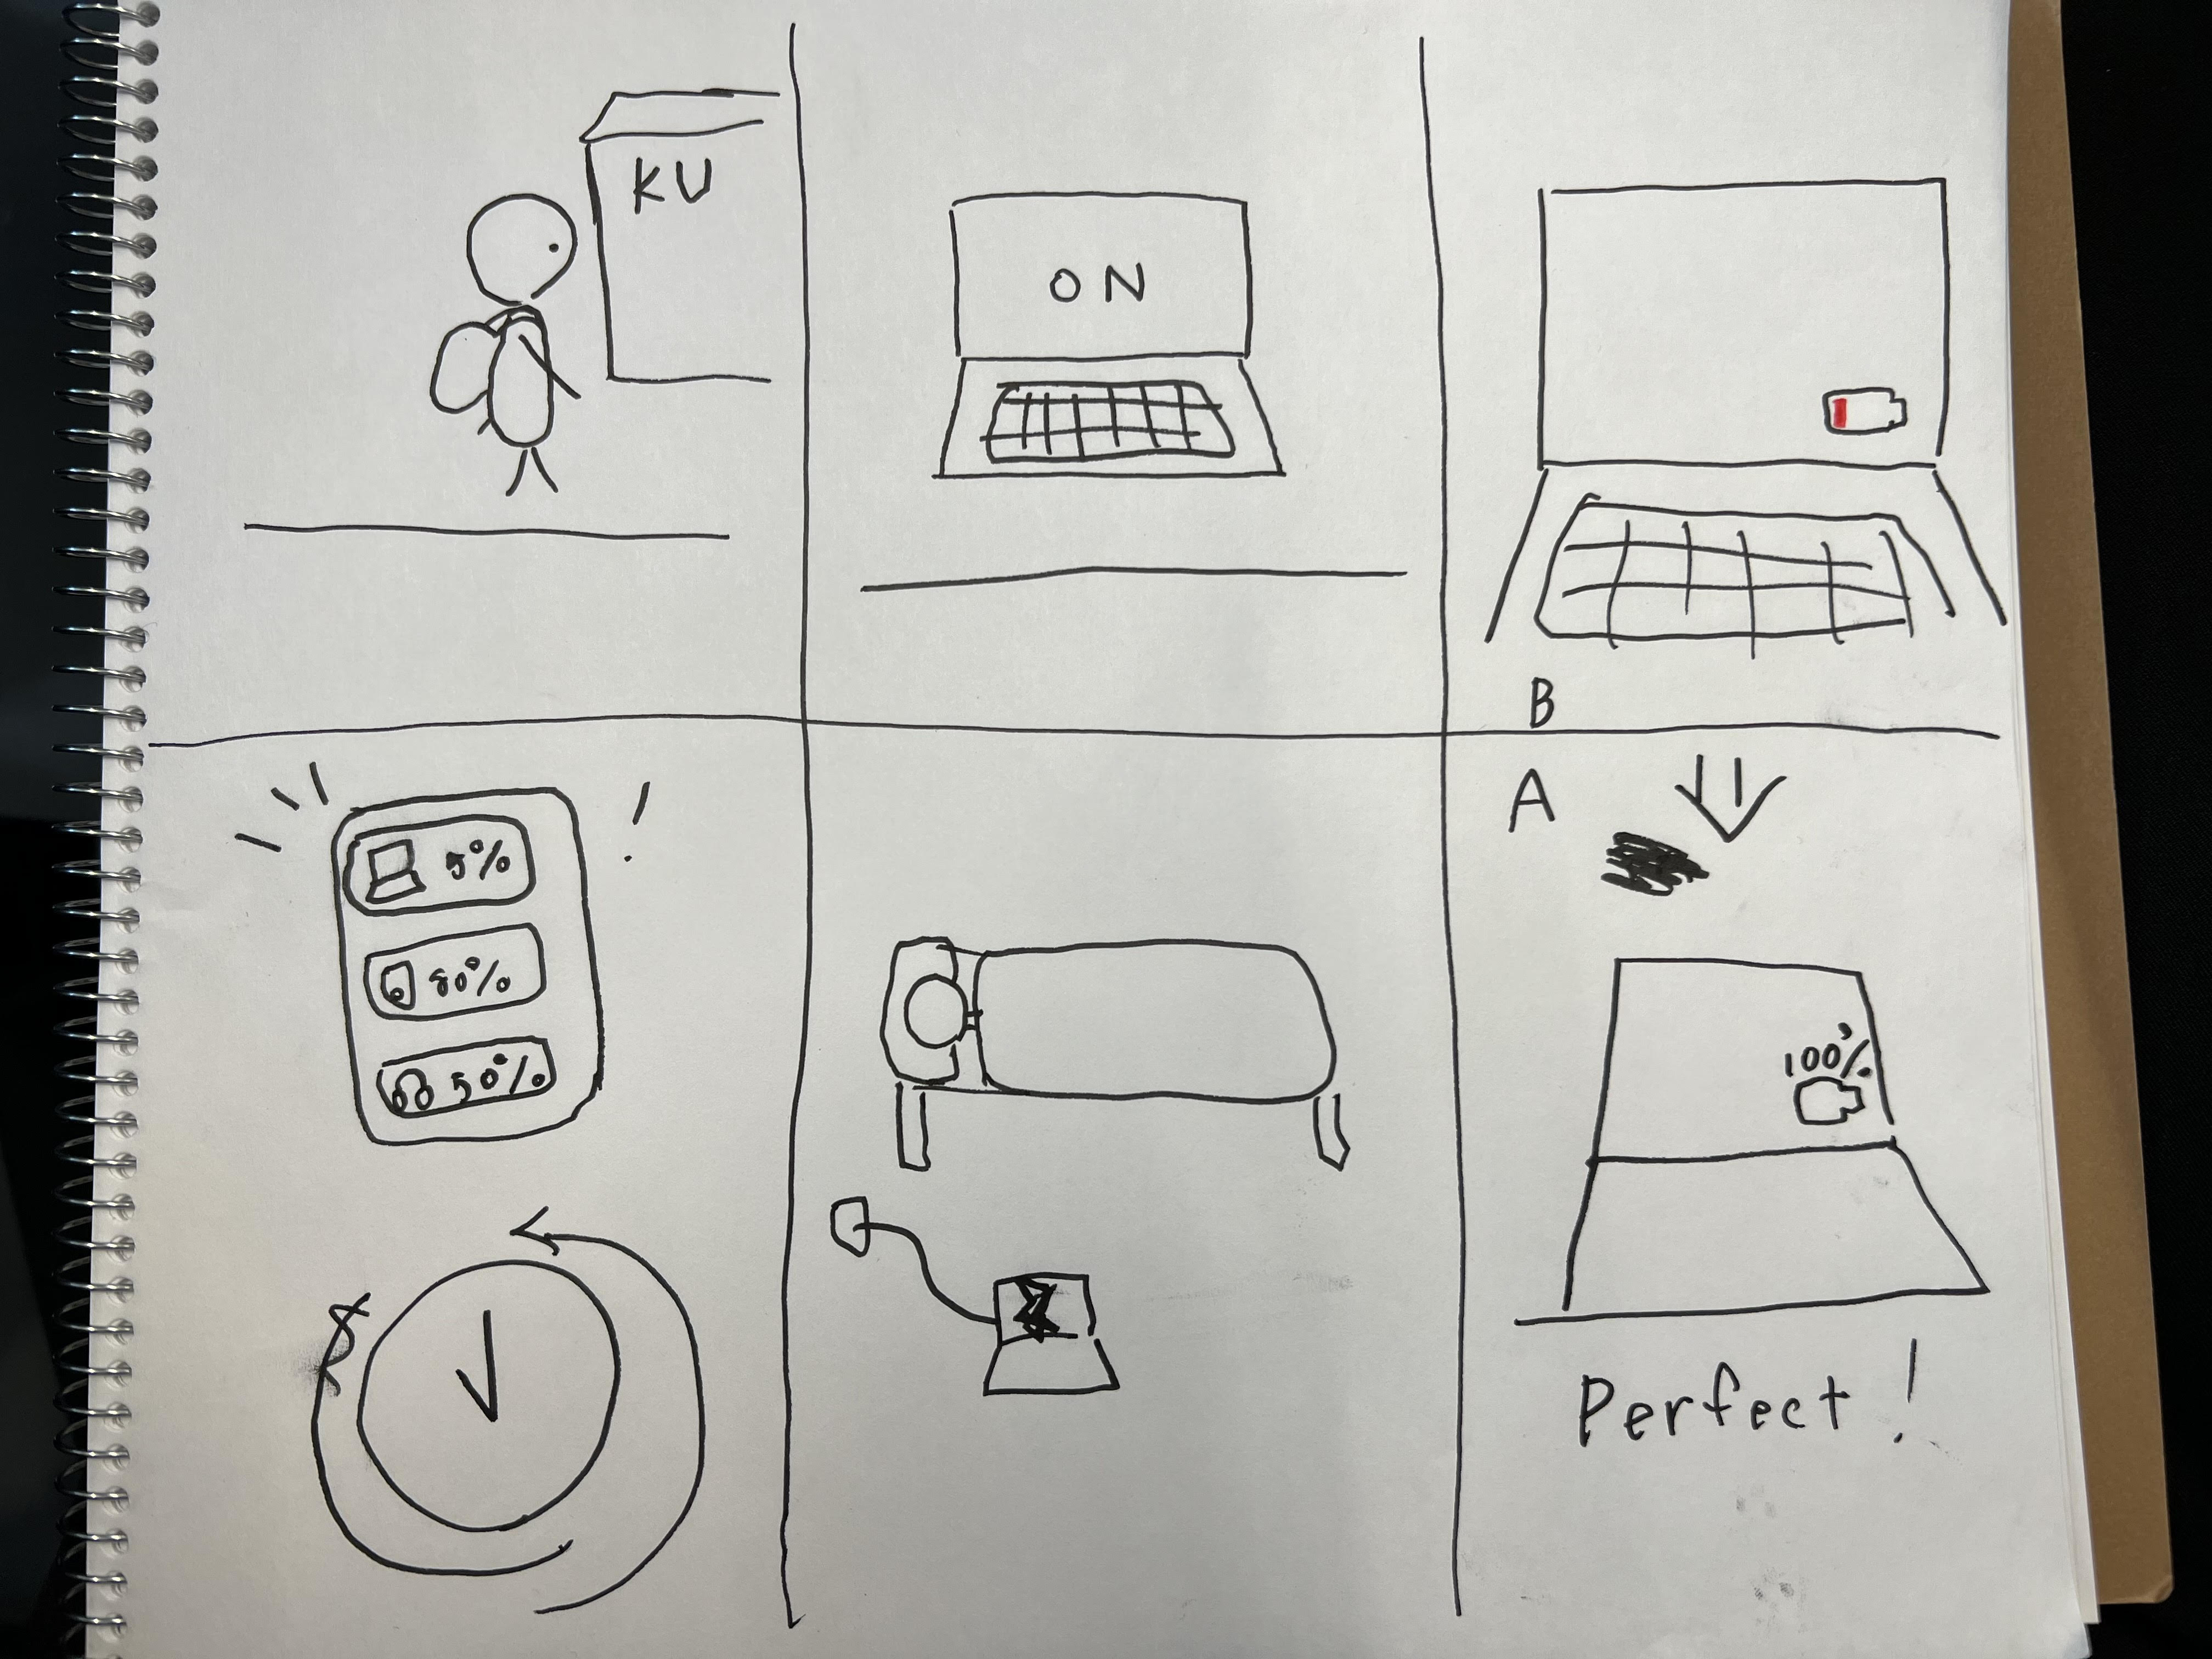 KU
ON
B
5%
80%
50%
A
100%
Perfect!